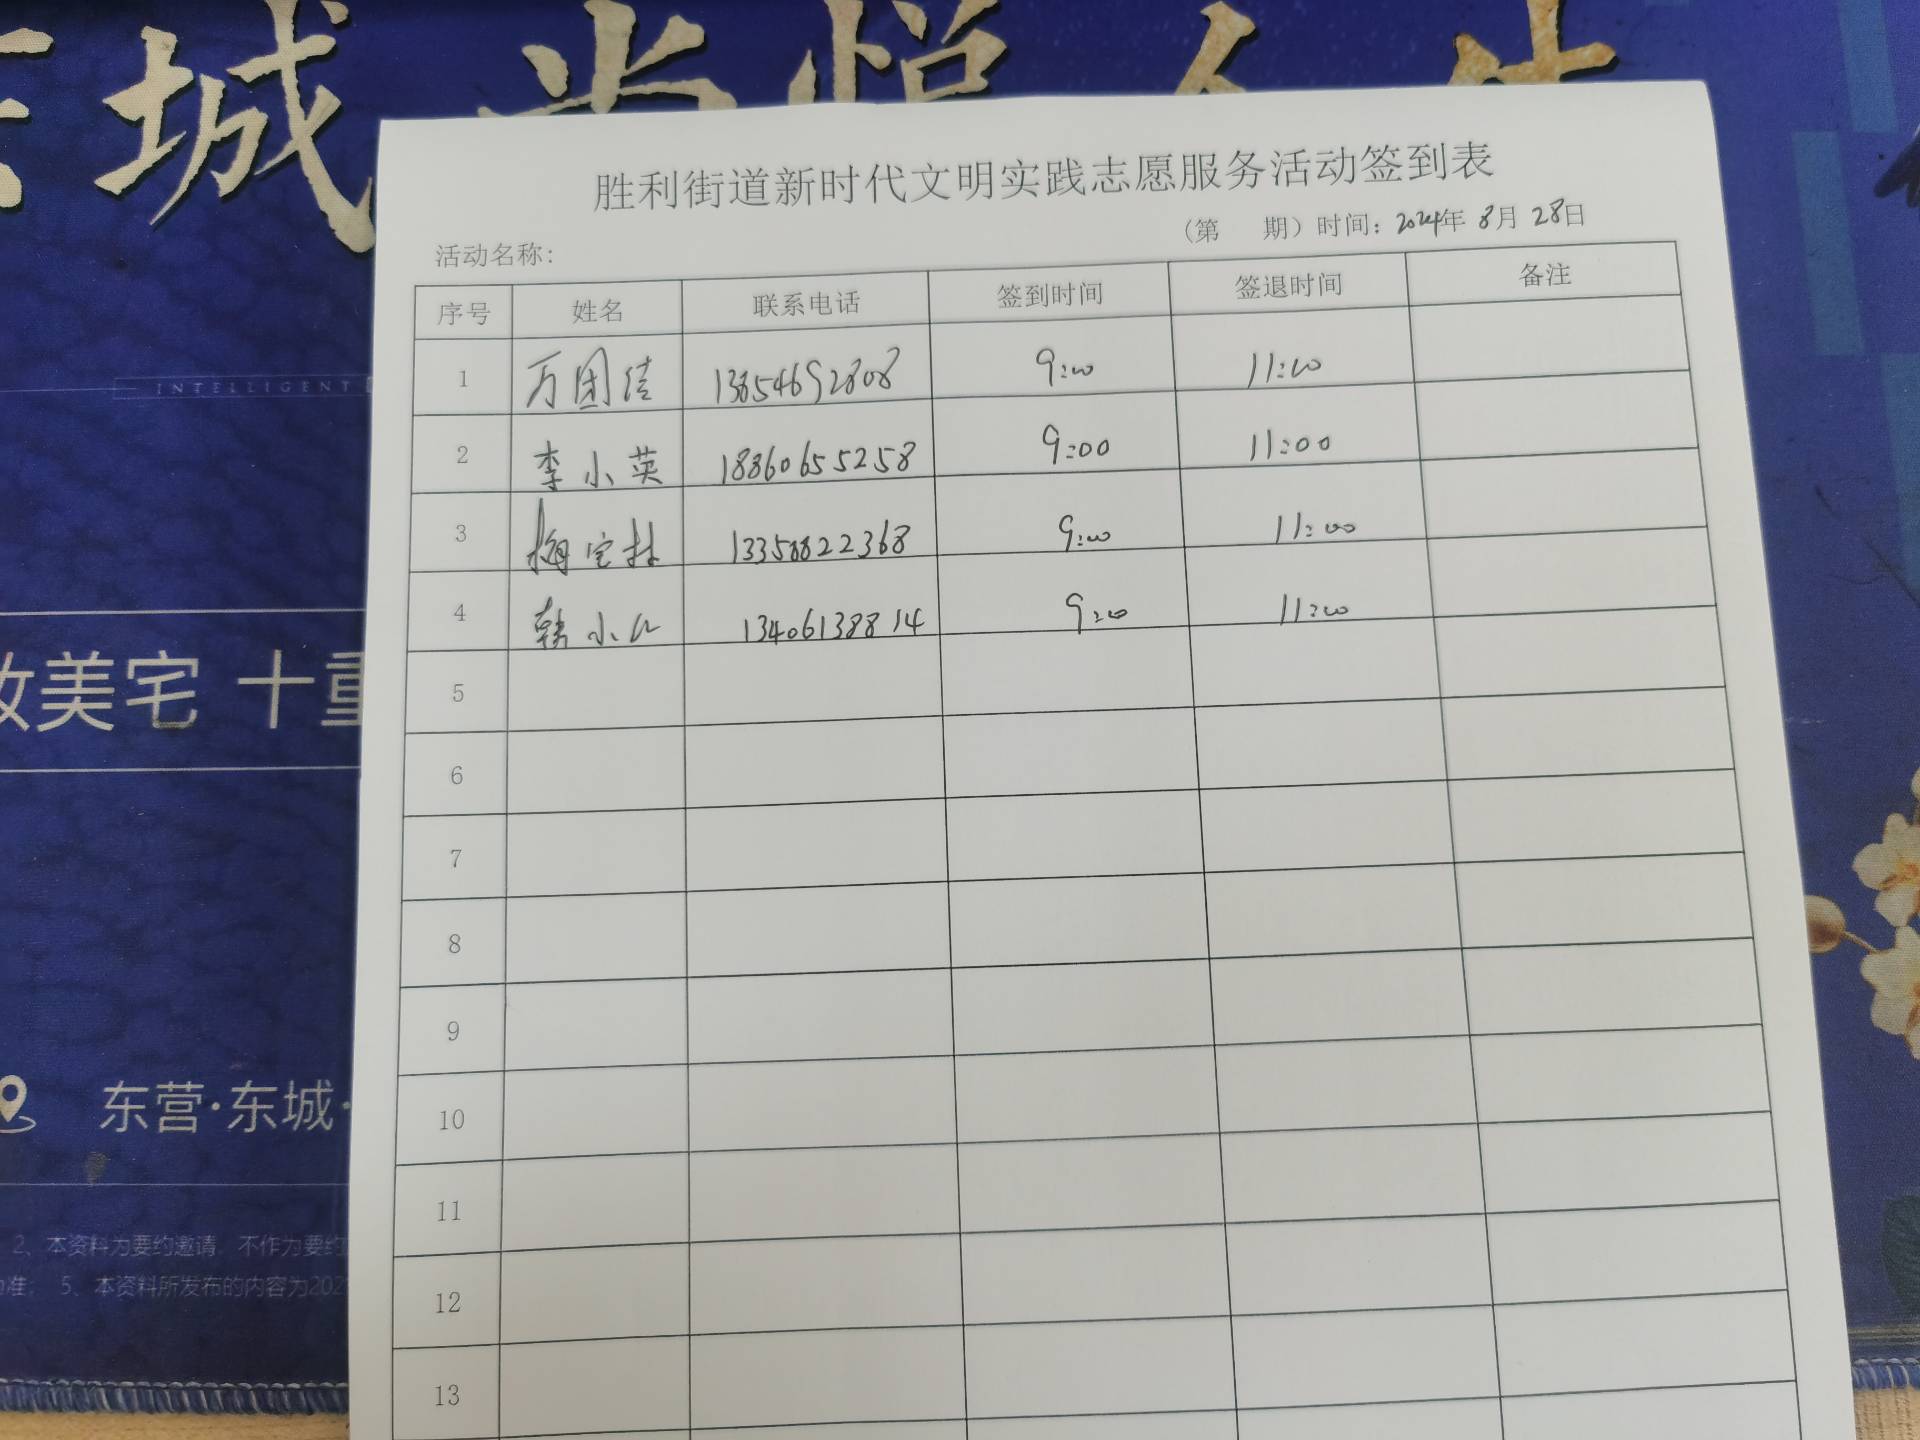 城 尚悦人生
胜利街道新时代文明实践志愿服务活动签到表
（第 期）时间：2024年 8月 28日
活动名称：
序号 姓名 联系电话 签到时间 签退时间 备注
1 万团结 13854692808 9:00 11:00
2 李小英 18860655258 9:00 11:00
3 梅宝林 13358822368 9:00 11:00
4 韩小 13406138814 9:00 11:00
5
6
7
8
9
10
11
12
13
INTELLIGENT
美宅 十重
东营·东城·
2、本资料为要约邀请，不作为要约
准； 5、本资料所发布的内容为202